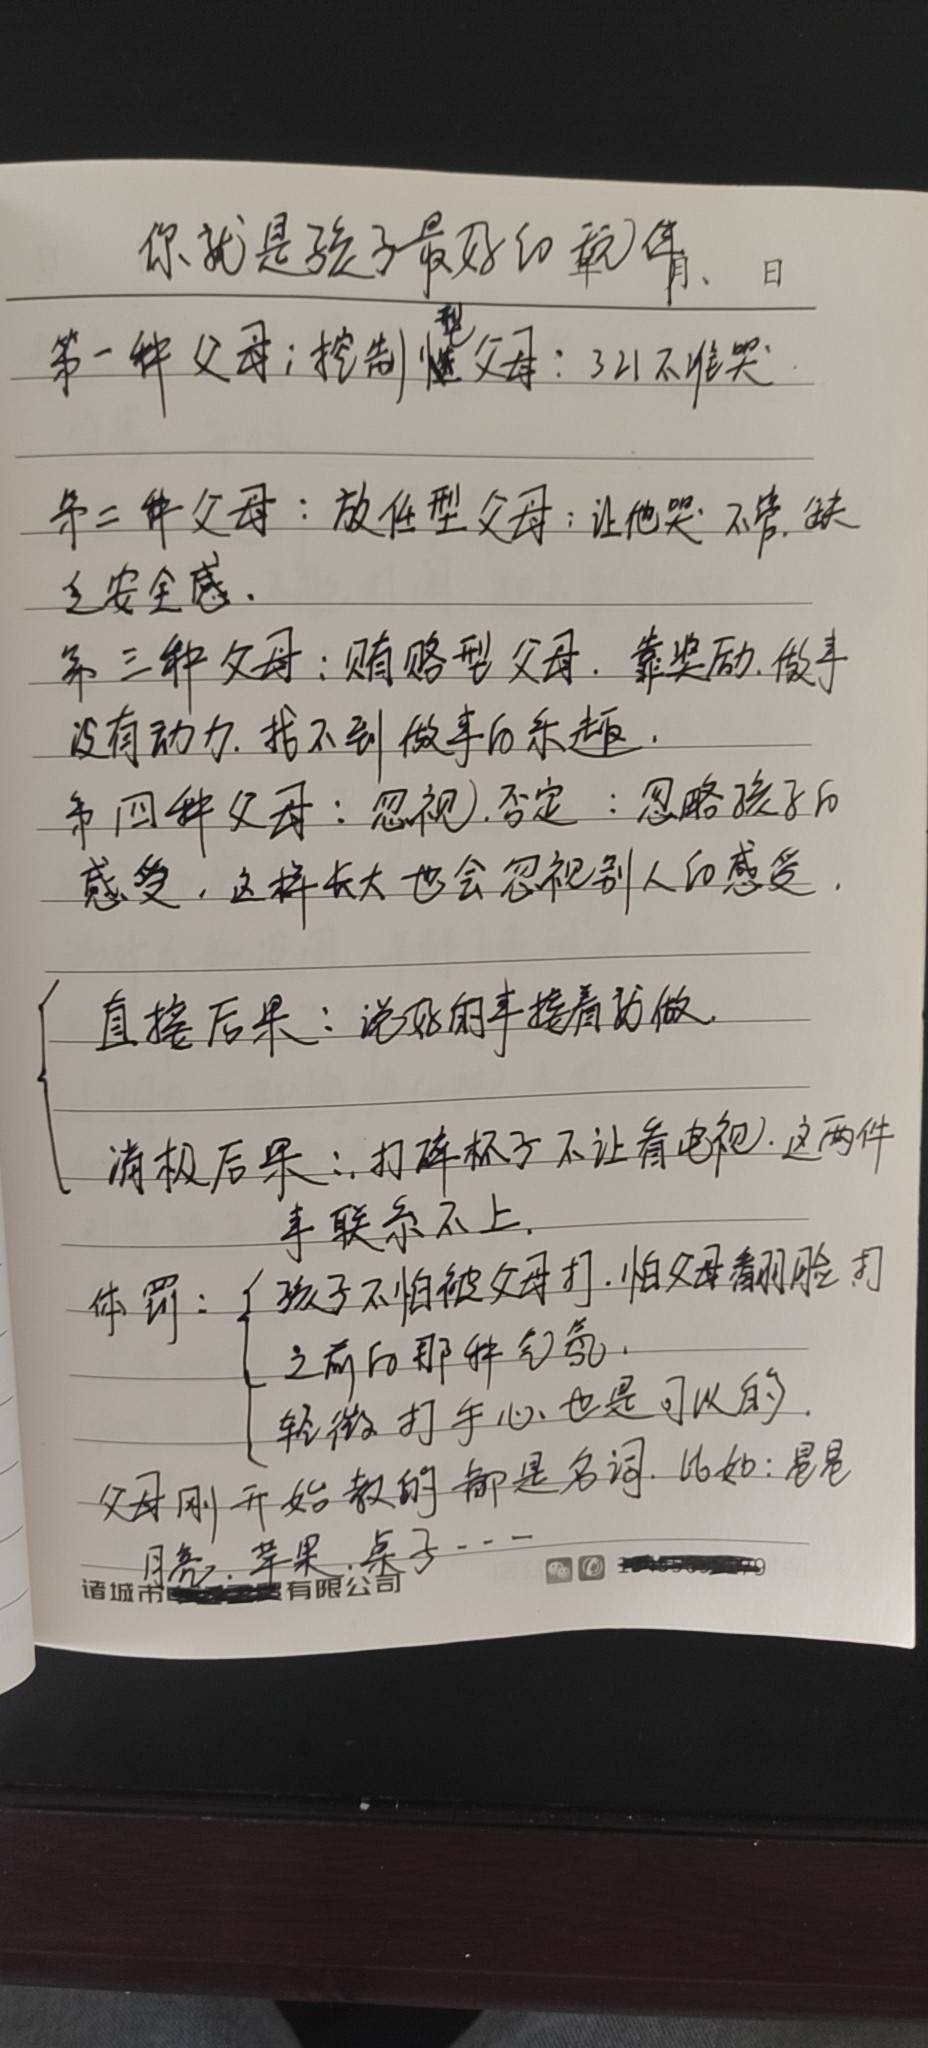 你就是孩子最好的玩具 月、 日
第一种父母；控制型父母：321不准哭.
第二种父母：放任型父母：让他哭.不管.缺
乏安全感.
第三种父母：贿赂型父母.靠奖励.做事
没有动力.找不到做事的乐趣.
第四种父母：忽视.否定：忽略孩子的
感受.这样长大也会忽视别人的感受.
直接后果：说好的事接着就做.
消极后果：.打碎杯子不让看电视.这两件
事联系不上.
体罚：孩子不怕被父母打.怕父母翻脸打
之前的那种气氛.
轻微打手心也是可以的.
父母刚开始教的都是名词.比如：星星
月亮.苹果.桌子---
诸城市 有限公司